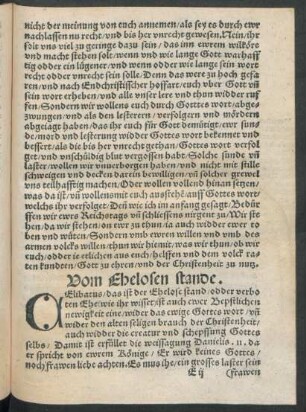 nicht der meinung von euch annemen/als sey es durch ewr
nachlassen nu recht/vnd bis her vnrecht gewesen/Nein/jhr
seid vns viel zu geringe dazu sein/das inn ewrem willkörs
vnd macht stehen solt/wenn vnd wie lange Gott warhaff
tig odder ein lügener/vnd wenn odder wie lange sein wort
recht odder vnrecht sein solle/Denn das were zu hoch gefa
ren/vnd nach Endchristischer hoffart/euch vber Gott vnd
sein wort erheben/vnd alle vnser leer vnd thun widder ruf
fen/Sondern wir wollens euch durch Gottes wort/abge
zwungen/vnd als den lesterern/verfolgern vnd mördern
abgeiagt haben/das jhr euch für Gott demütiget/ewr sun
de/mord vnd lesterung widder Gottes wort bekennet vnd
bessert/als die bis her vnrecht gethan/Gottes wort verfol
get/vnd vnschüldig blut vergossen habt/Solche sunde vnd
laster/wollen wir vnuerborgen haben/vnd nicht mit stille
schweigen vnd decken darein bewilligen/vnd solcher grewel
vns teilhafftig machen/Oder wollen vollend hinan setzen/
was da ist/vnd wollens mit euch ausstehen auff Gottes wort/
welchs jhr verfolget/Den wie ich im anfang gesagt/Bedürf
ffen wir ewes Reichstags vnd schliessens nirgent zu/Wir ste
hen/da wir stehen/on ewr zu thun/ia auch widder ewr to
ben vnd wüten/Sondern vmb ewren willen vnd vmb des
armen volcks willen/thun wir hiemit/was wir thun/ob wir
euch/odder ie etlichen aus euch/helffen vnd dem volck ra
ten kundten/Gott zu ehren/vnd der Christenheit zu nutz.
Vom Ehelosen stande.
CElibatus/das ist der Ehelose stand/odder verbo
ten Ehe/wie jhr wisset/ist auch ewer Bepstlichen
newigkeit eine/wider das ewige Gottes wort/vnd
wider den alten seligen brauch der Christenheit/
auch widder die creatur vnd schepffung Gottes
selbs/Damit ist erfüllet die weissagung Danielis. 11. da
er spricht von ewrem Könige/Er wird keines Gottes/
noch frawen liebe achten/Es mus jhe/ein grosses laster sein
E ij (frawen